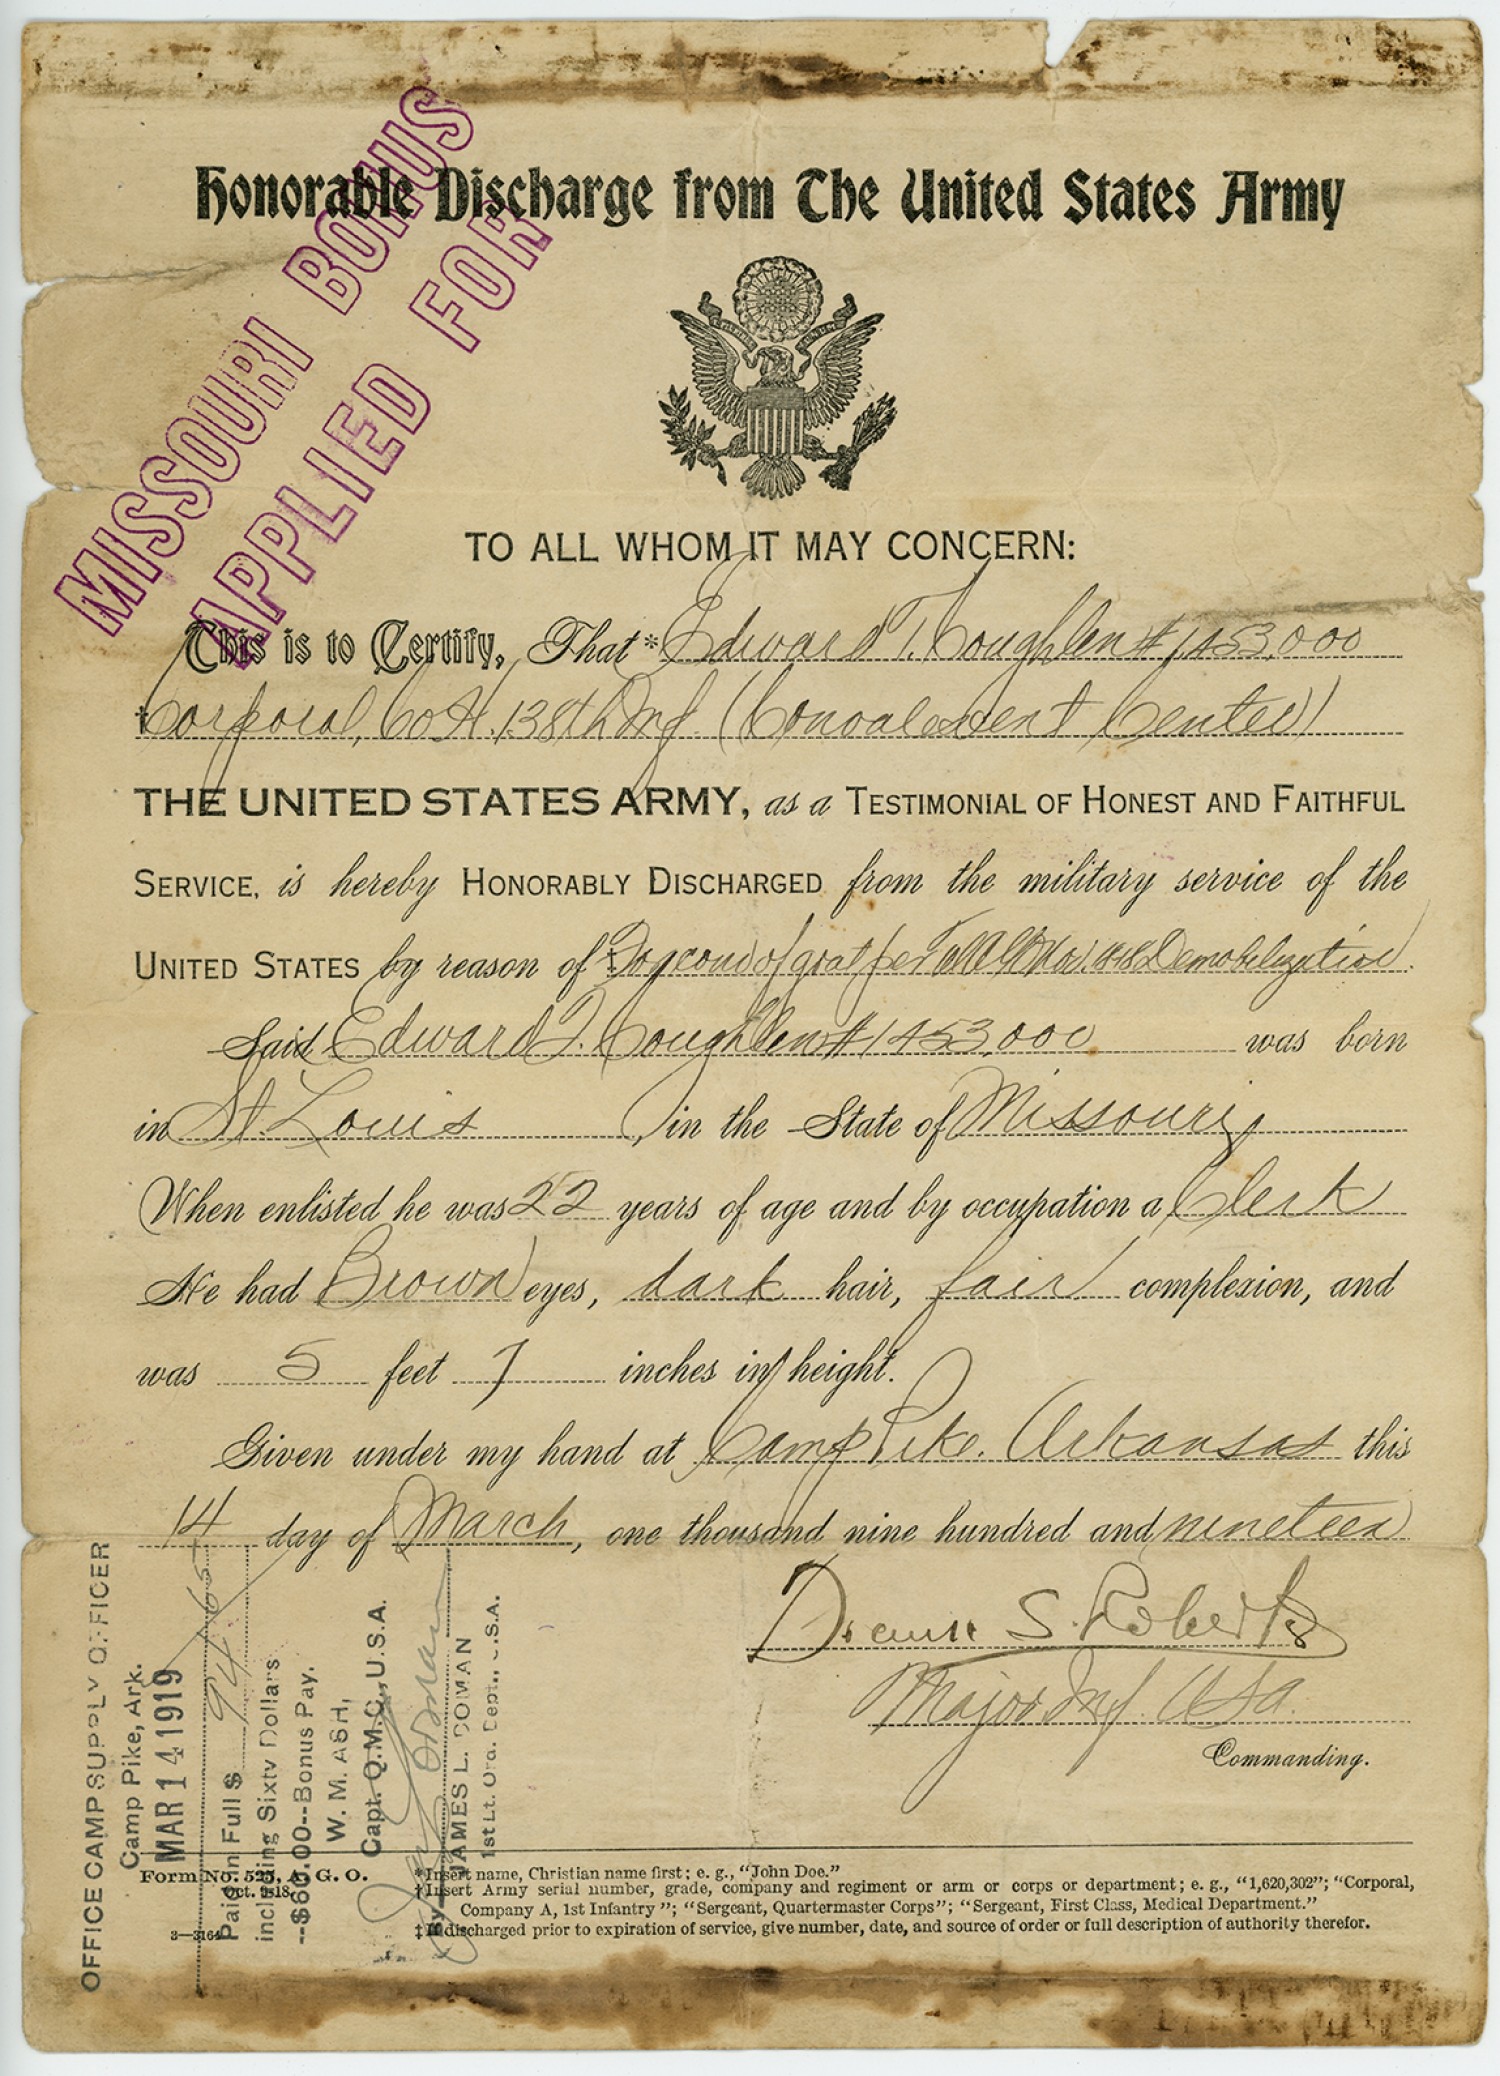 MISSOURI BONUS
APPLIED FOR
Honorable Discharge from The United States Army
TO ALL WHOM IT MAY CONCERN:
This is to Certify, That * Edward T. Coughlen # 1,453,000
† Corporal, Co H. 138th Inf. (Convalescent Center)
THE UNITED STATES ARMY, as a TESTIMONIAL OF HONEST AND FAITHFUL
SERVICE, is hereby HONORABLY DISCHARGED from the military service of the
UNITED STATES by reason of ‡ per Demobilization
Said Edward T. Coughlen # 1453,000 was born
in St. Louis, in the State of Missouri
When enlisted he was 22 years of age and by occupation a Clerk
He had Brown eyes, dark hair, fair complexion, and
was 5 feet 7 inches in height.
Given under my hand at Camp Pike. Arkansas this
14 day of March, one thousand nine hundred and nineteen
S. Roberts
Major. Inf. USA.
Commanding.
OFFICE CAMP SUPPLY OFFICER
Camp Pike, Ark.
MAR 14 1919
Paid in Full $ 94 65
including Sixty Dollars
--$60.00--Bonus Pay.
W. M. ASH,
Capt. Q.M.C., U.S.A.
By
JAMES L. DOMAN
1st Lt. Ord. Dept., U.S.A.
Form No. 525, A. G. O.
Oct. 9-18.
3—3164
*Insert name, Christian name first; e. g., "John Doe."
†Insert Army serial number, grade, company and regiment or arm or corps or department; e. g., "1,620,302"; "Corporal,
Company A, 1st Infantry"; "Sergeant, Quartermaster Corps"; "Sergeant, First Class, Medical Department."
‡If discharged prior to expiration of service, give number, date, and source of order or full description of authority therefor.